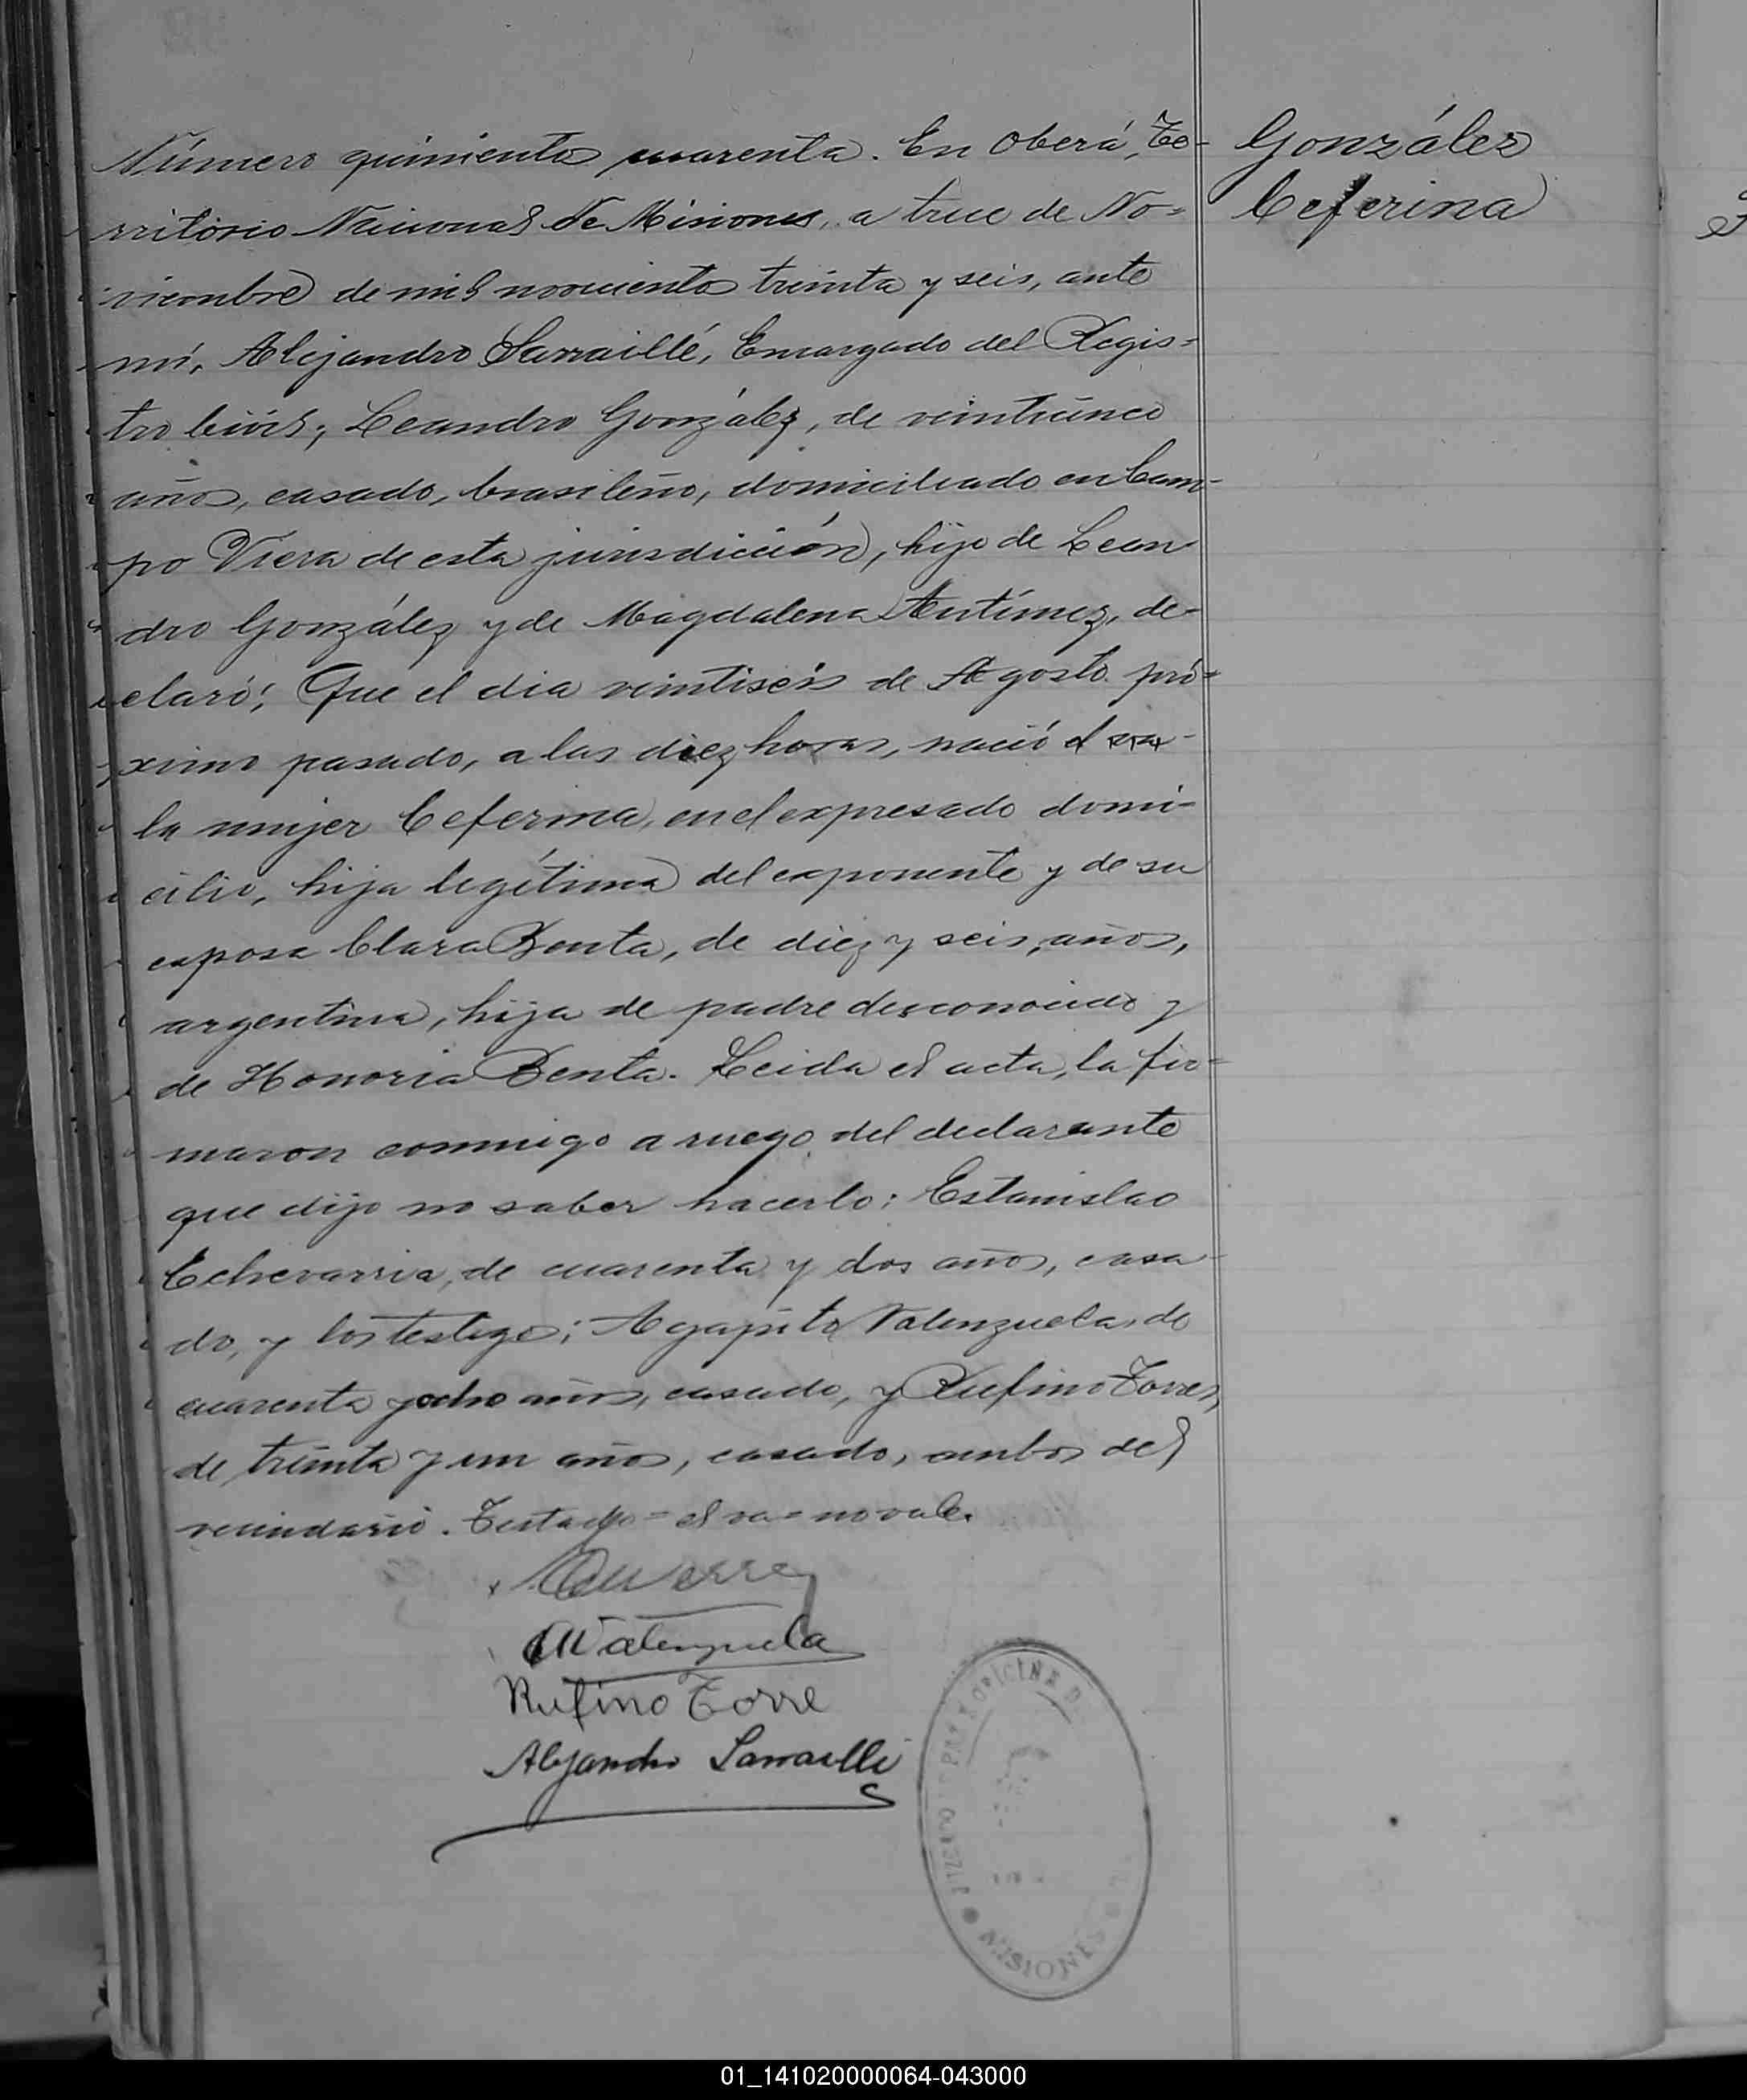 González
Ceferina
Número quinientos cuarenta. En Oberá, Te-
rritorio Nacional de Misiones, a trece de No=
viembre de mil novecientos treinta y seis, ante
mí, Alejandro Sarraillé, Encargado del Regis=
tro Civil; Leandro González, de veinticinco
años, casado, brasileño, domiciliado en Cam-
po Viera de esta jurisdicción, hijo de Lean
dro González y de Magdalena Antúnez, de-
claró: Que el día veintiseis de Agosto pró=
ximo pasado, a las diez horas, nació el va-
la mujer Ceferina, en el expresado domi-
cilio, hija legítima del exponente y de su
esposa Clara Benta, de diez y seis, años,
argentina, hija de padre desconocido y
de Honoria Benta. Leida el acta, la fir=
maron conmigo a ruego del declarante
que dijo no saber hacerlo: Estanislao
Echevarria, de cuarenta y dos años, casa-
do, y los testigos; Agapito Valenzuela, de
cuarenta y ocho años, casado, y Rufino Torres,
de treinta y un años, casado, ambos del
vecindario. Testado = el va = no vale.
AValenzuela
Rufino Torre
Alejandro Sarraillé
OFICINA D
MISIONES
01_141020000064-043000